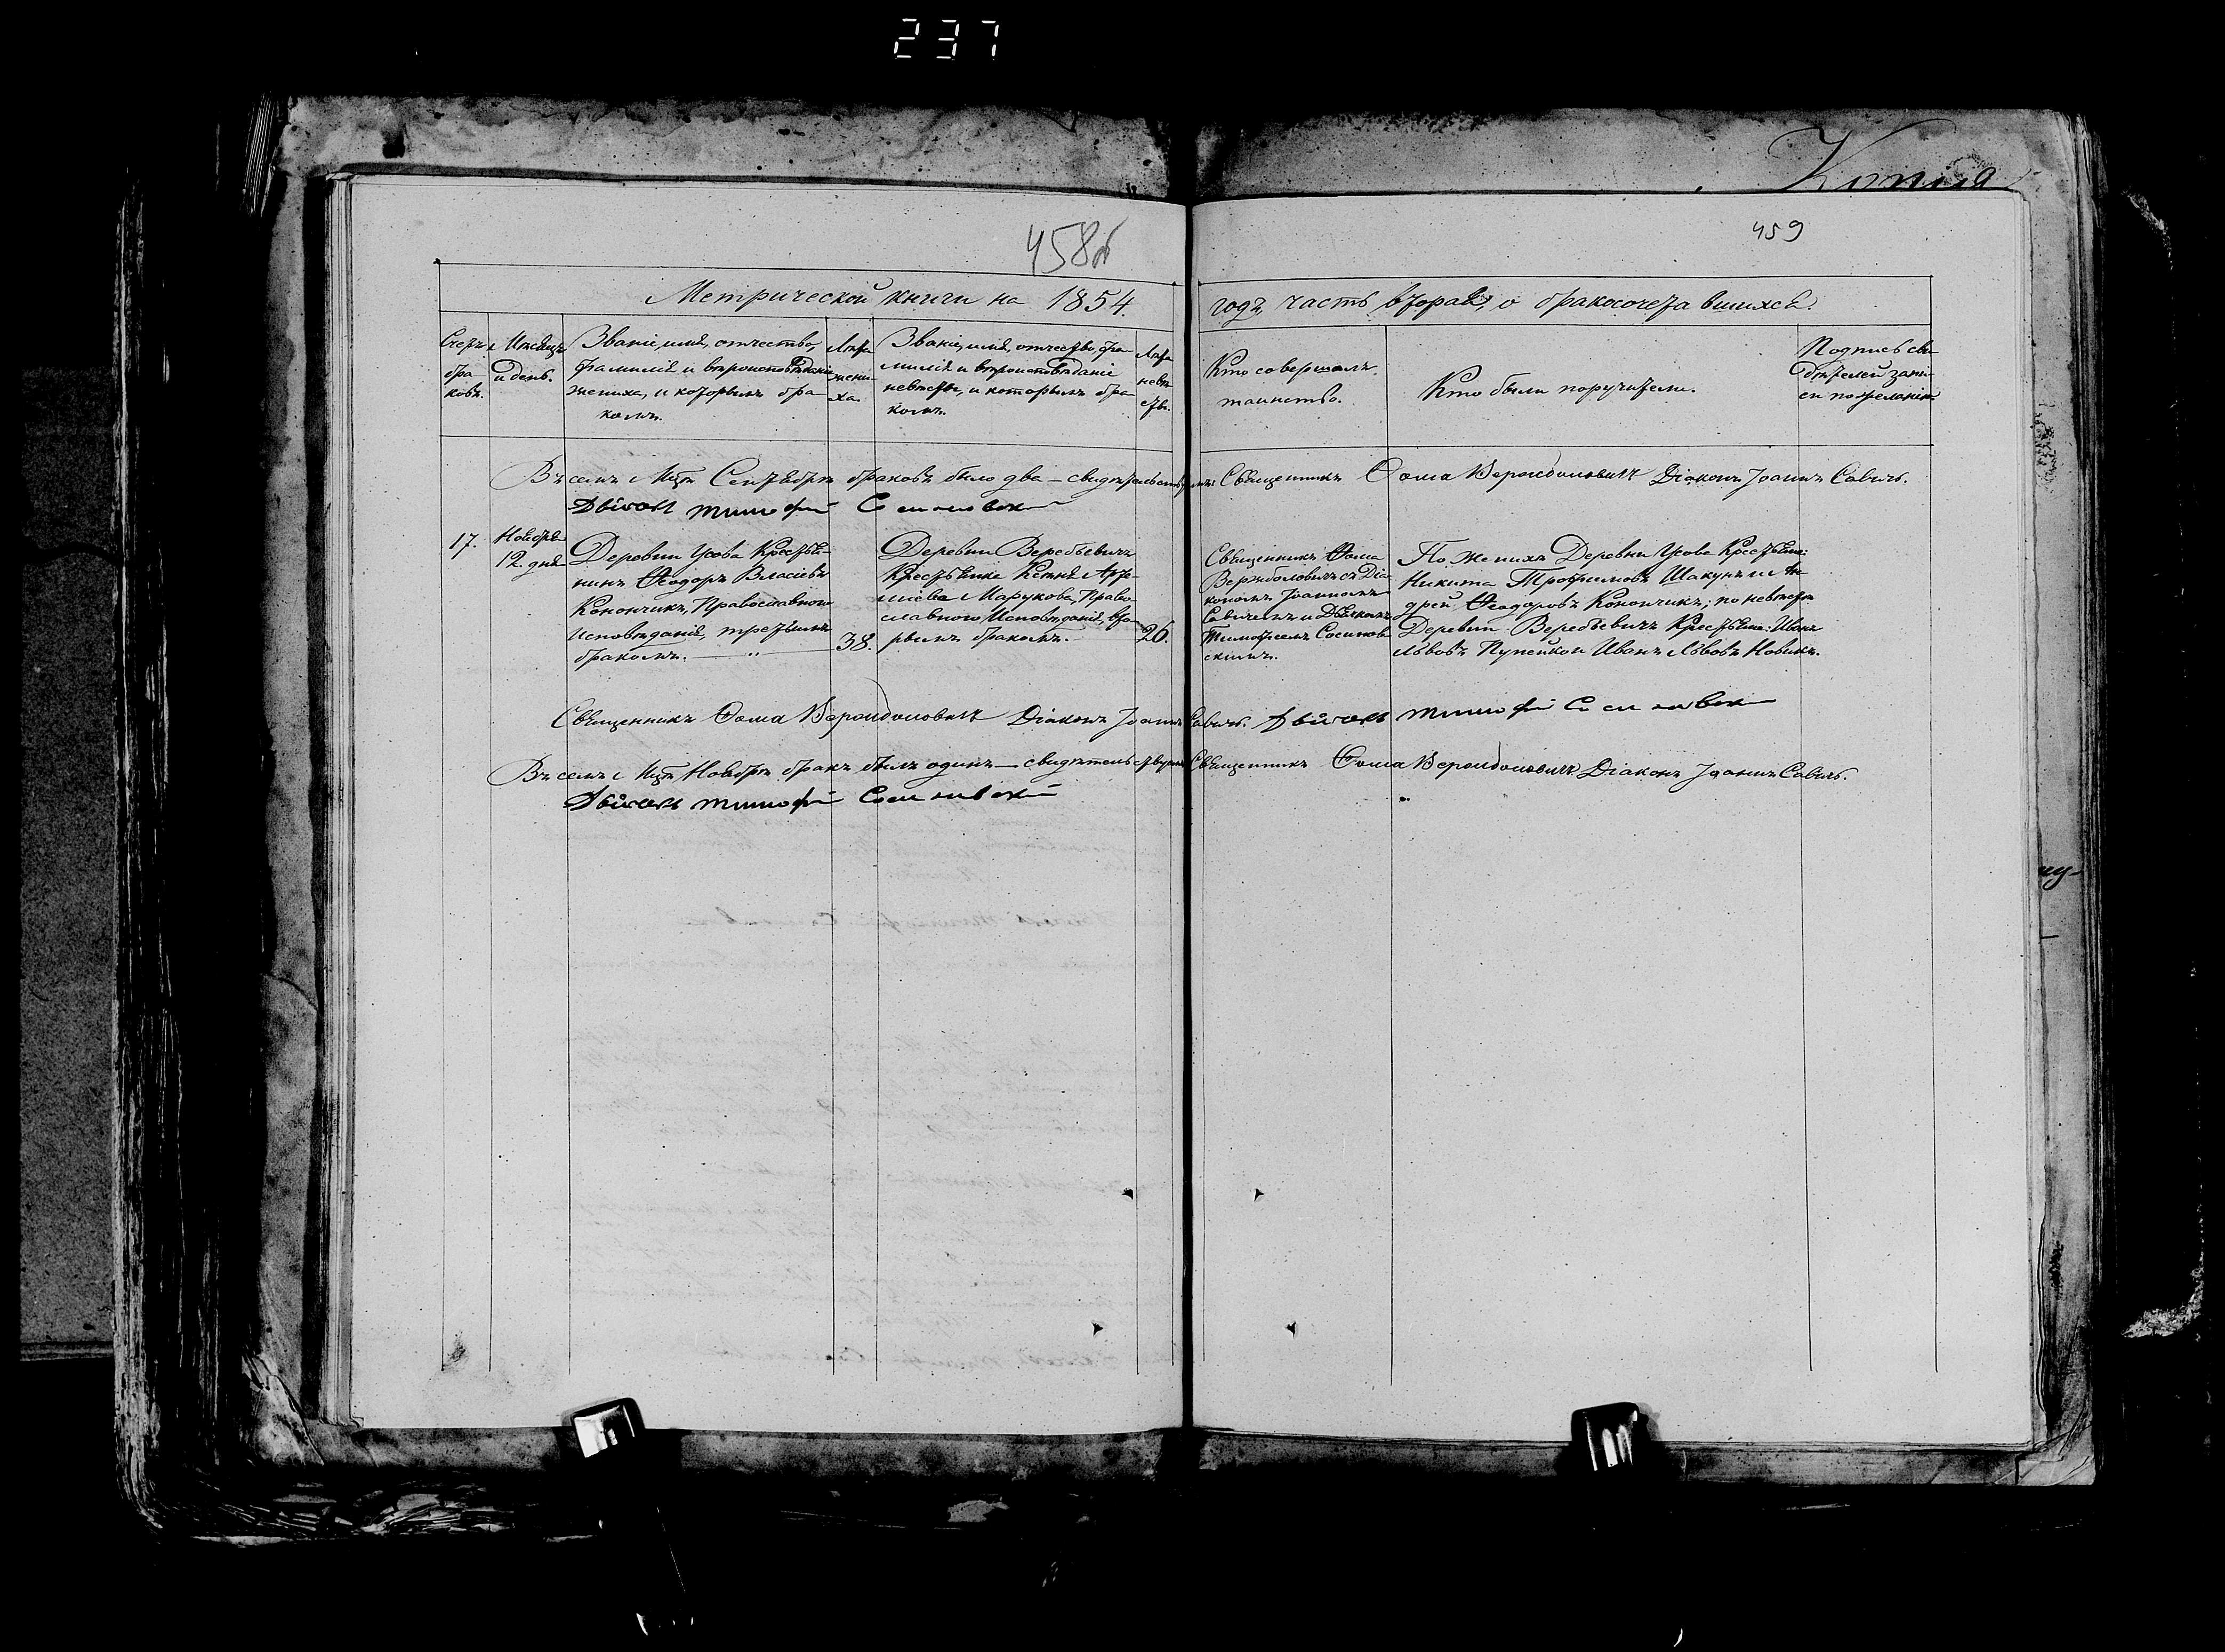 237
Копія
458об
459
Метрической книги на 1854.
годъ, часть вторая, о бракосочетавшихся.
Счетъ
бра-
ковъ.
Мѣсяцъ
и день.
Званіе, имя, отчество,
фамилія и вѣроисповѣданіе
жениха, и которымъ бра-
комъ.
Лѣта
жени-
ха.
Званіе, имя, отчество, фа-
милія и вѣроисповѣданіе
невѣсты, и которымъ бра-
комъ.
Лѣта
невѣ-
сты.
Кто совершалъ
таинство.
Кто были поручители.
Подпись сви-
дѣтелей запи-
си по желанію
Въ семъ Мцѣ Сентябрѣ браковъ было два — свидѣтельствуемъ: Священникъ Фома Вержболовичъ Діаконъ Іоаннъ Савичъ.
Дьячокъ Тимофей
17.
Ноября
12. дня
Деревни Усова Крестья-
нинъ Ѳеодоръ Власіевъ
Конончикъ, Православнаго
Исповѣданія, третьимъ
бракомъ. — " —
38.
Деревни Веребьевичъ
Крестьянка Арте-
міева Марукова, Право-
славнаго Исповѣданія, вто-
рымъ бракомъ.
26.
Священникъ Фома
Вержболовичъ съ Діа-
кономъ Іоанномъ
Савичемъ и Дьячкомъ
Тимофеемъ Сосинов-
скимъ.
По женихѣ Деревни Усова Крестьяне:
Никита Трофимовъ Шакунъ и Ан-
дрей Ѳеодоровъ Конончикъ; по невѣстѣ
Деревни Веребьевичъ Крестьяне: Иванъ
Львовъ Пупейко и Иванъ Львовъ Новикъ.
Священникъ Фома Вержболовичъ Діаконъ Іоаннъ Савичъ. Дьячокъ Тимофей
Въ семъ Мцѣ Ноябрѣ бракъ былъ одинъ — свидѣтельствуемъ Священникъ Фома Вержболовичъ Діаконъ Іоаннъ Савичъ.
Дьячокъ Тимофей